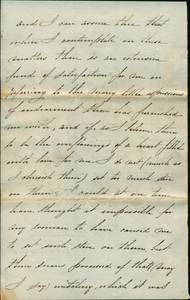 and I can assure thee that
when I contemplate on these
matters there is an extensive
funds of satisfaction for me in
referring to the many little expressions
of endearment I have been furnished
me with, and if, as I believe them
to be the outpourings of a heart filled
with love for me I do as much as
I cherish them, set so much store
on them, I could at one time
have thought it impossible for
any woman to have caused me
to set such store on them, but
thee seems possessed of that, may
I say, witchery, which it was